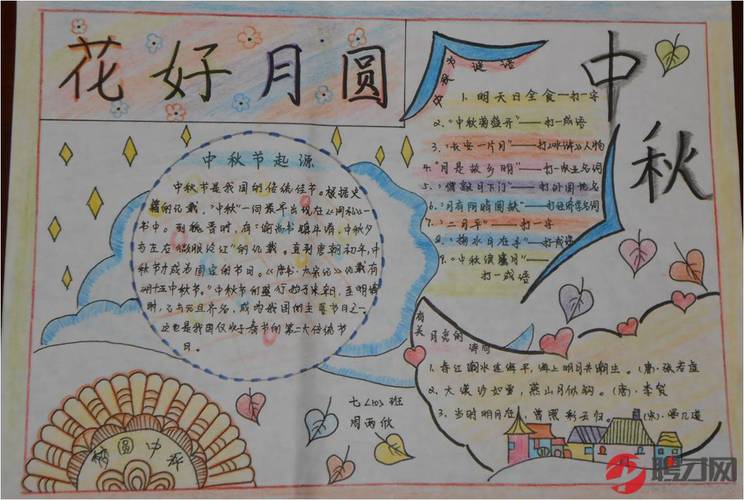 花好月圆
中秋
中秋节起源
中秋节是我国的传统佳节。根据史
籍的记载,“中秋”一词最早出现在《周礼》一
书中。到魏晋时,有“谕尚书镇牛渚,中秋夕
与左右微服泛江”的记载。直到唐朝初年,中
秋节才成为固定的节日。《唐书·太宗记》记载有
“八月十五中秋节”。中秋节的盛行始于宋朝,至明清
时,已与元旦齐名,成为我国的主要节日之一。
这也是我国仅次于春节的第二大传统节
日。
中秋谜语
1、明天日全食—打一字
2、“中秋菊盛开”——打一成语
3、“长安一片月”——打《水浒》人物
4、“月是故乡明”——打一
5、“僧敲月下门”——打外国地名
6、“月有阴晴圆缺”——打经济学名词
7、“二月平”——打一字
8、“掬水月在手”——打成语
9、“中秋度蜜月”——
打一成语
有关月亮的诗词
1、春江潮水连海平,海上明月共潮生。(唐)张若虚
2、大漠沙如雪,燕山月似钩。(唐)李贺
3、当时明月在,曾照彩云归。(宋)晏几道
七<10>班
周雨欣
中秋
聘才网